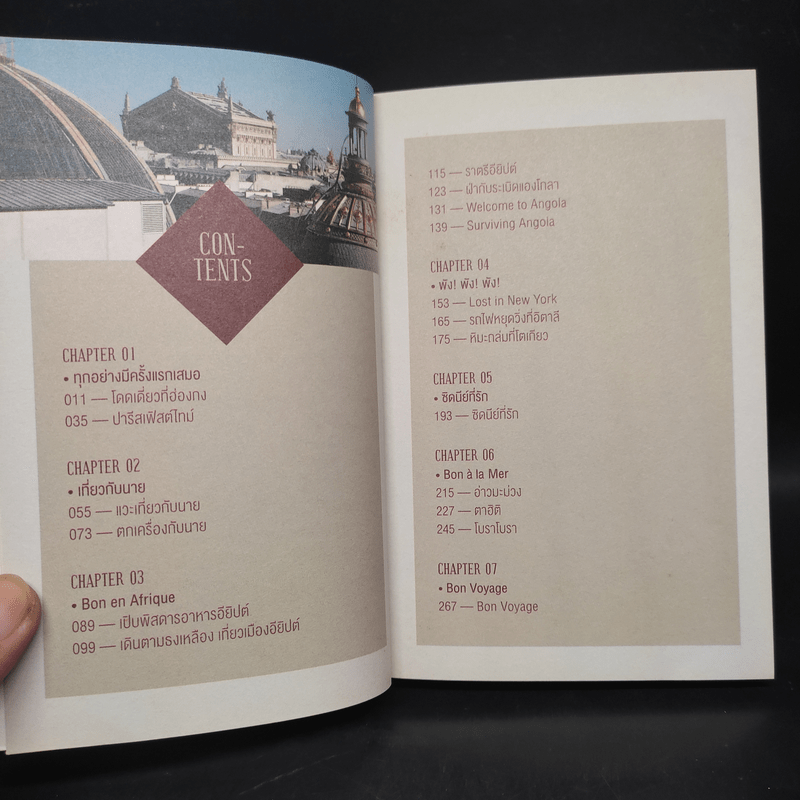 CON-
TENTS
CHAPTER 01
• ทุกอย่างมีครั้งแรกเสมอ
011 — โดดเดี่ยวที่ฮ่องกง
035 — ปารีสเฟิสต์ไทม์
CHAPTER 02
• เที่ยวกับนาย
055 — แวะเที่ยวกับนาย
073 — ตกเครื่องกับนาย
CHAPTER 03
• Bon en Afrique
089 — เปิบพิสดารอาหารอียิปต์
099 — เดินตามธงเหลือง เที่ยวเมืองอียิปต์
115 — ราตรีอียิปต์
123 — ฝ่ากับระเบิดแองโกลา
131 — Welcome to Angola
139 — Surviving Angola
CHAPTER 04
• พัง! พัง! พัง!
153 — Lost in New York
165 — รถไฟหยุดวิ่งที่อิตาลี
175 — หิมะถล่มที่โตเกียว
CHAPTER 05
• ซิดนีย์ที่รัก
193 — ซิดนีย์ที่รัก
CHAPTER 06
• Bon à la Mer
215 — อ่าวมะม่วง
227 — ตาฮิติ
245 — โบราโบรา
CHAPTER 07
• Bon Voyage
267 — Bon Voyage